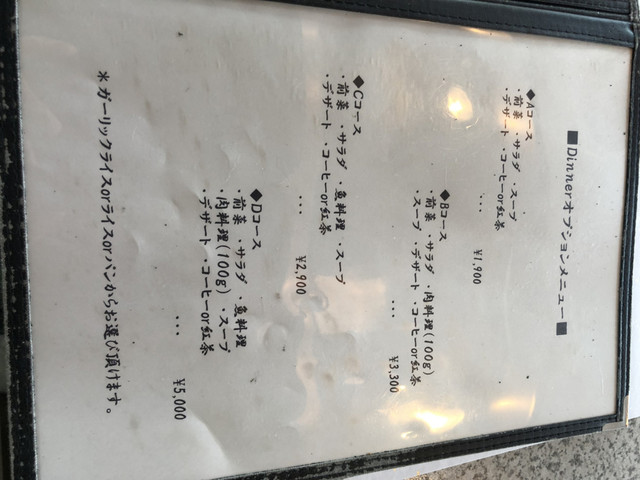 ■Dinnerオプションメニュー■
◆Aコース
・前菜 ・サラダ ・スープ
・デザート ・コーヒーor紅茶
... ¥1,900
◆Bコース
・前菜 ・サラダ ・肉料理(100g)
・スープ ・デザート ・コーヒーor紅茶
... ¥3,300
◆Cコース
・前菜 ・サラダ ・魚料理 ・スープ
・デザート ・コーヒーor紅茶
... ¥2,900
◆Dコース
・前菜 ・サラダ ・魚料理
・肉料理(100g) ・スープ
・デザート ・コーヒーor紅茶
... ¥5,000
*ガーリックライスorライスorパンからお選び頂けます。